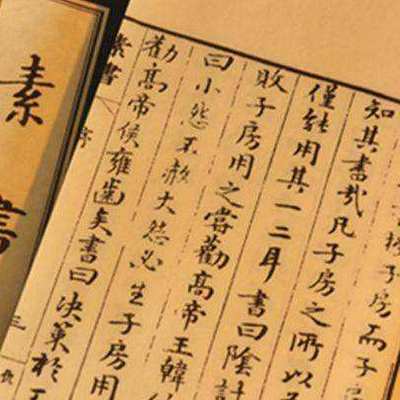 子房而子
知其書哉凡子房之所以
僅能用其一二耳書曰陰計
敗子房用之嘗勸高帝王韓
曰小怨不赦大怨必生子房用
勸高帝侯雍齒矣書曰決策於
素書 序 三
素書